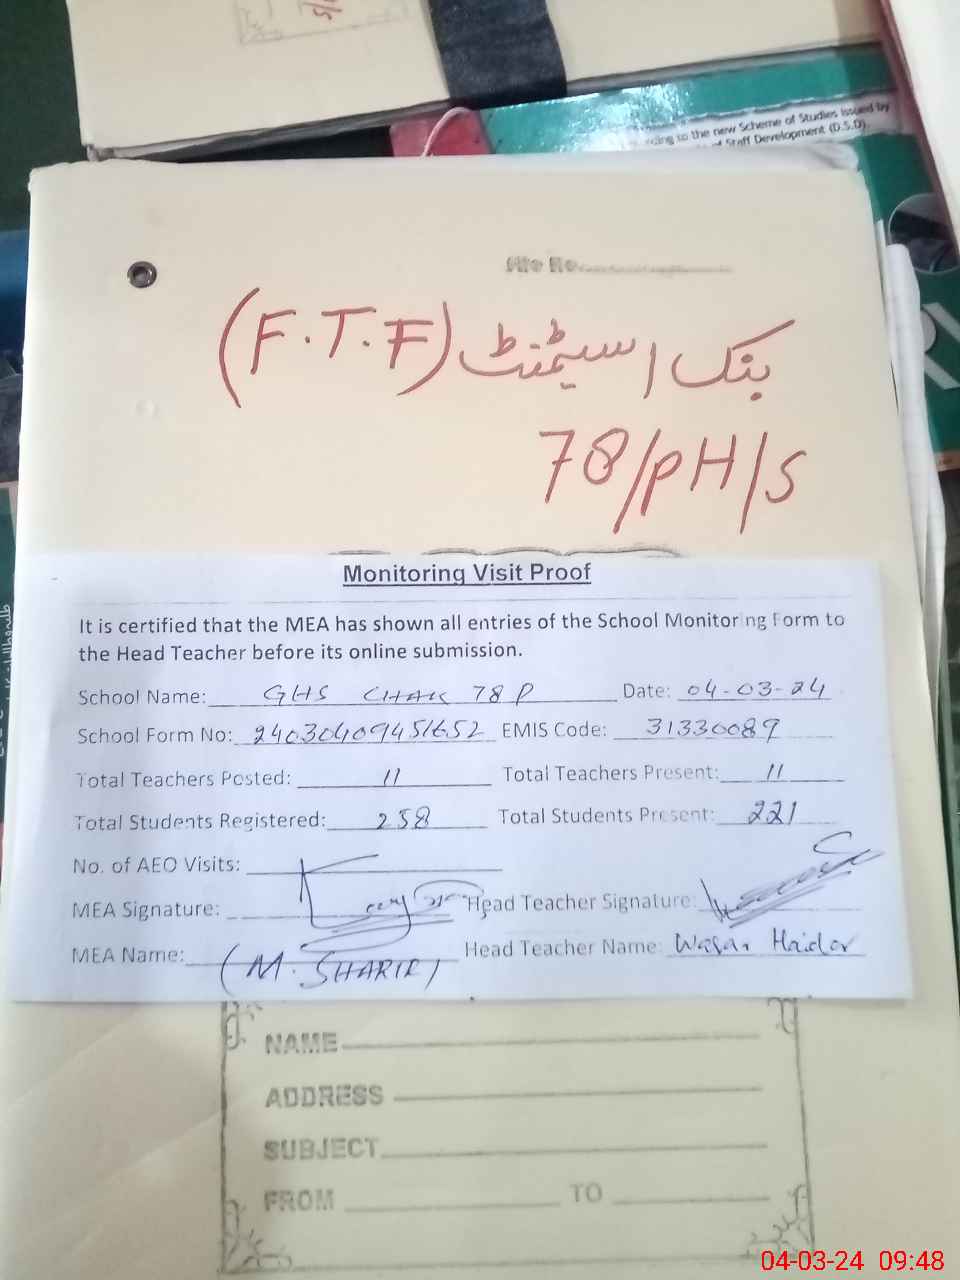 ding to the new Scheme of Studies issued by
of Staff Development (D.S.D).
File No.
بنک اسٹیمنٹ (F.T.F)
78/PH/S
Monitoring Visit Proof
It is certified that the MEA has shown all entries of the School Monitoring Form to
the Head Teacher before its online submission.
School Name: GHS CHAK 78 P Date: 04-03-24
School Form No: 24030409451652 EMIS Code: 31330089
Total Teachers Posted: 11 Total Teachers Present: 11
Total Students Registered: 258 Total Students Present: 221
No. of AEO Visits:
MEA Signature: Head Teacher Signature:
MEA Name: (M. SHARIF) Head Teacher Name: Waqar Haider
NAME
ADDRESS
SUBJECT
FROM TO
04-03-24 09:48